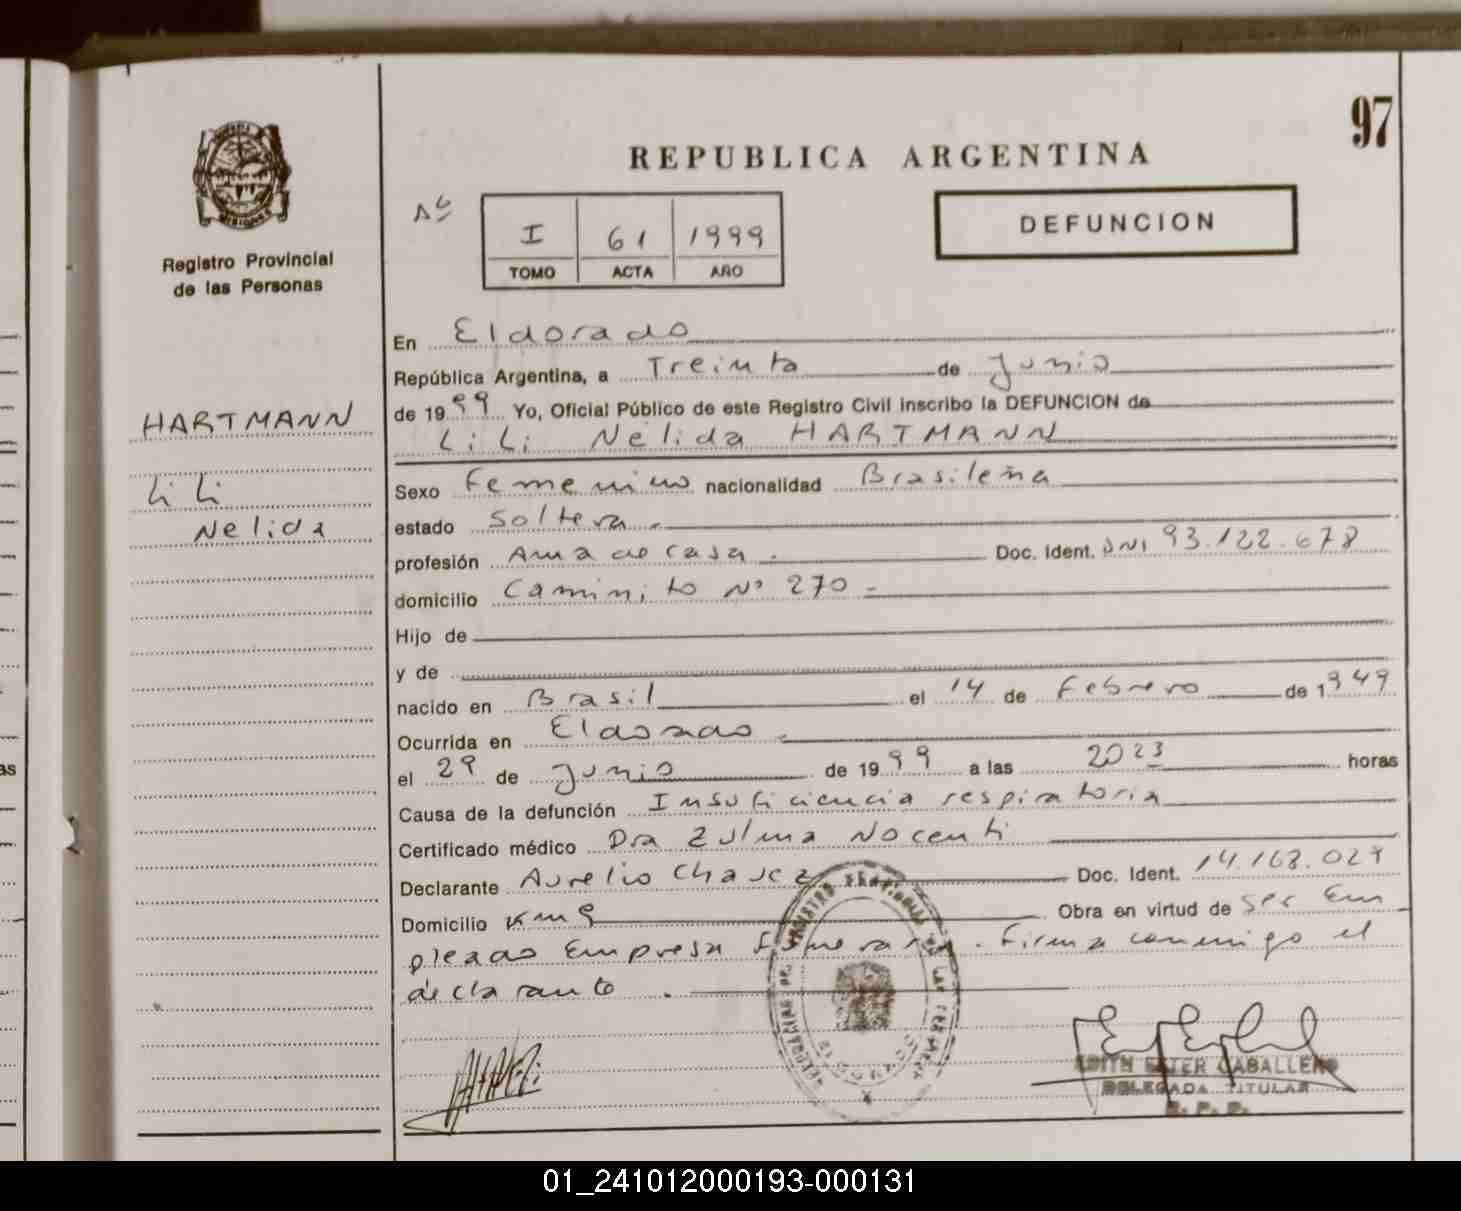 97
REPUBLICA ARGENTINA
Registro Provincial
de las Personas
Nº
I 61 1999
TOMO ACTA AÑO
DEFUNCION
HARTMANN
Lili
Nelida
En Eldorado
República Argentina, a Treinta de Junio
de 1999 Yo, Oficial Público de este Registro Civil inscribo la DEFUNCION de
LiLi Nelida HARTMANN
Sexo Femenino nacionalidad Brasileña
estado Soltera.
profesión Ama de casa. Doc. Ident. DNI 93.122.678
domicilio Caminito Nº 270
Hijo de
y de
nacido en Brasil el 14 de Febrero de 1949
Ocurrida en Eldorado.
el 29 de Junio de 1999 a las 2023 horas
Causa de la defunción Insuficiencia respiratoria
Certificado médico Dra Zulma Nocenti
Declarante Aurelio Chavez Doc. Ident. 14.168.029
Domicilio Km 9 Obra en virtud de ser Em
pleado Empresa Funeraria. Firma conmigo el
declarante.
EDITH ESTER CABALLERO
DELEGADA TITULAR
R. P. P.
01_241012000193-000131